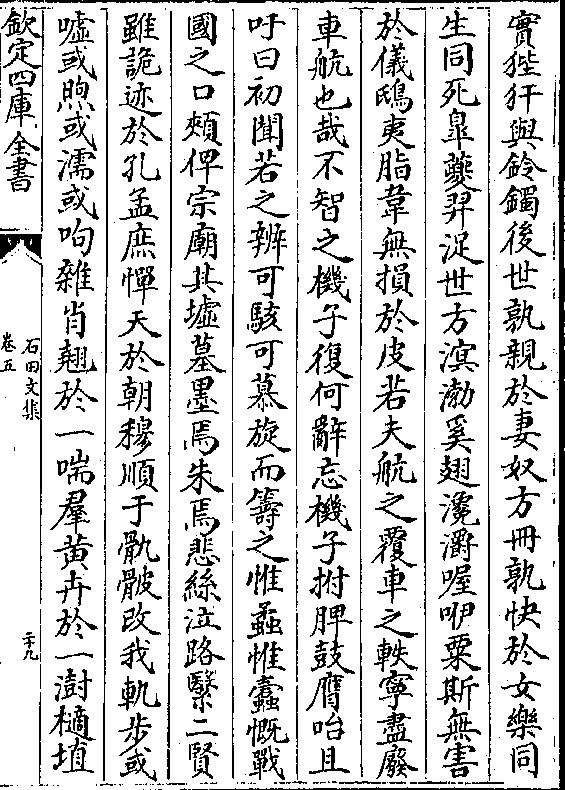 實狴犴與鈴鐲後世孰親於妻奴方冊孰快於女樂同
生同死臯夔羿浞世方溟渤奚翅灂喔咿粟斯無害
於儀鴟夷脂韋無損於皮若夫航之覆車之軼寧盡廢
車航也哉不智之機子復何辭忘機子拊脾鼓膺咍且
吁曰初聞若之辨可駭可慕旋而籌之惟蝨惟蠹慨戰
國之口頰俾宗廟其墟墓墨焉朱焉悲絲泣路繄二賢
雖詭迹於孔孟庶憚天於朝穆順于骫骳改我軌步或
噓或煦或濡或呴雜肖翹於一喘羣黄卉於一澍樀埴
欽定四庫全書
石田文集
卷五
二十九